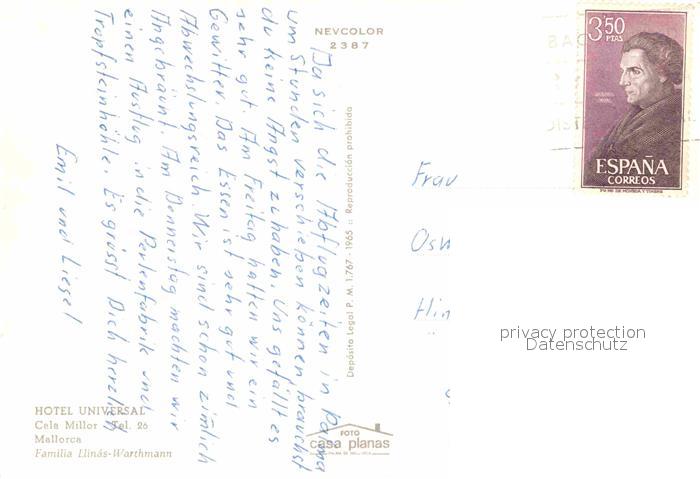 NEVCOLOR
2387
3'50
PTAS
ESPAÑA
CORREOS
Da sich die Abflugzeiten in Palma
um Stunden verschieben können brauchst
du keine Angst zu haben. Uns gefällt es
sehr gut. Am Freitag hatten wir ein
Gewitter. Das Essen ist sehr gut und
Abwechslungsreich. Wir sind schon zimlich
Angebräunt. Am Dennerstag machten wir
einen Ausflug in die Perlenfabrik und
Tropfsteinhöhle. Es grüsst Dich herzlich
Emil und Liesel
Depósito Legal P. M. 1.767 - 1965 :: Reproducción prohibida
Frau
privacy protection
Datenschutz
HOTEL UNIVERSAL
Cala Millor - Tel. 26
Mallorca
Familia Llinás-Warthmann
FOTO
casa planas